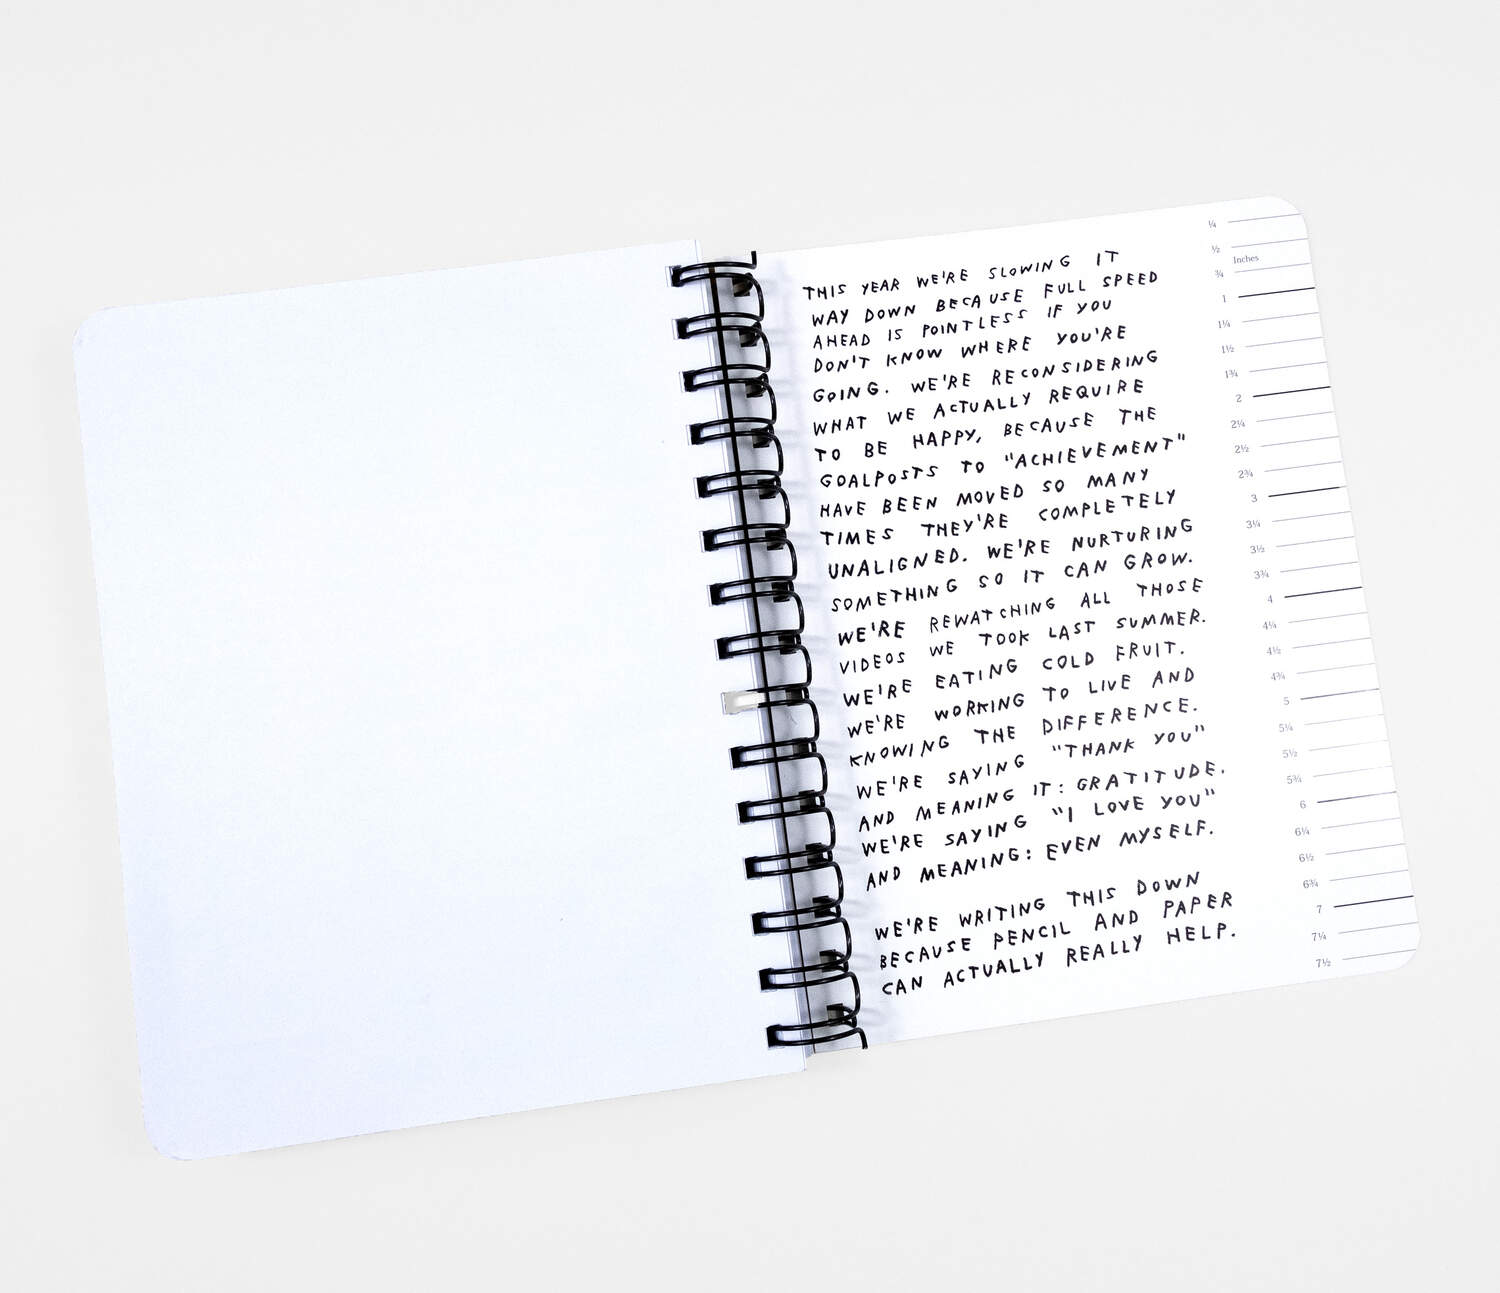 THIS YEAR WE'RE SLOWING IT
WAY DOWN BECAUSE FULL SPEED
AHEAD IS POINTLESS IF YOU
DON'T KNOW WHERE YOU'RE
GOING. WE'RE RECONSIDERING
WHAT WE ACTUALLY REQUIRE
TO BE HAPPY, BECAUSE THE
GOALPOSTS TO "ACHIEVEMENT"
HAVE BEEN MOVED SO MANY
TIMES THEY'RE COMPLETELY
UNALIGNED. WE'RE NURTURING
SOMETHING SO IT CAN GROW.
WE'RE REWATCHING ALL THOSE
VIDEOS WE TOOK LAST SUMMER.
WE'RE EATING COLD FRUIT.
WE'RE WORKING TO LIVE AND
KNOWING THE DIFFERENCE.
WE'RE SAYING "THANK YOU"
AND MEANING IT: GRATITUDE.
WE'RE SAYING "I LOVE YOU"
AND MEANING: EVEN MYSELF.
WE'RE WRITING THIS DOWN
BECAUSE PENCIL AND PAPER
CAN ACTUALLY REALLY HELP.
¼
½
Inches
¾
1
1¼
1½
1¾
2
2¼
2½
2¾
3
3¼
3½
3¾
4
4¼
4½
4¾
5
5¼
5½
5¾
6
6¼
6½
6¾
7
7¼
7½